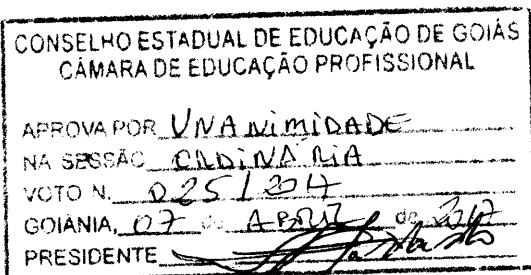 CONSELHO ESTADUAL DE EDUCAÇÃO DE GOIÁS
CÂMARA DE EDUCAÇÃO PROFISSIONAL
APROVA POR UNANIMIDADE
NA SESSÃO ORDINÁRIA
VOTO N. 025/2017
GOIÂNIA, 07 de ABRIL de 2017
PRESIDENTE